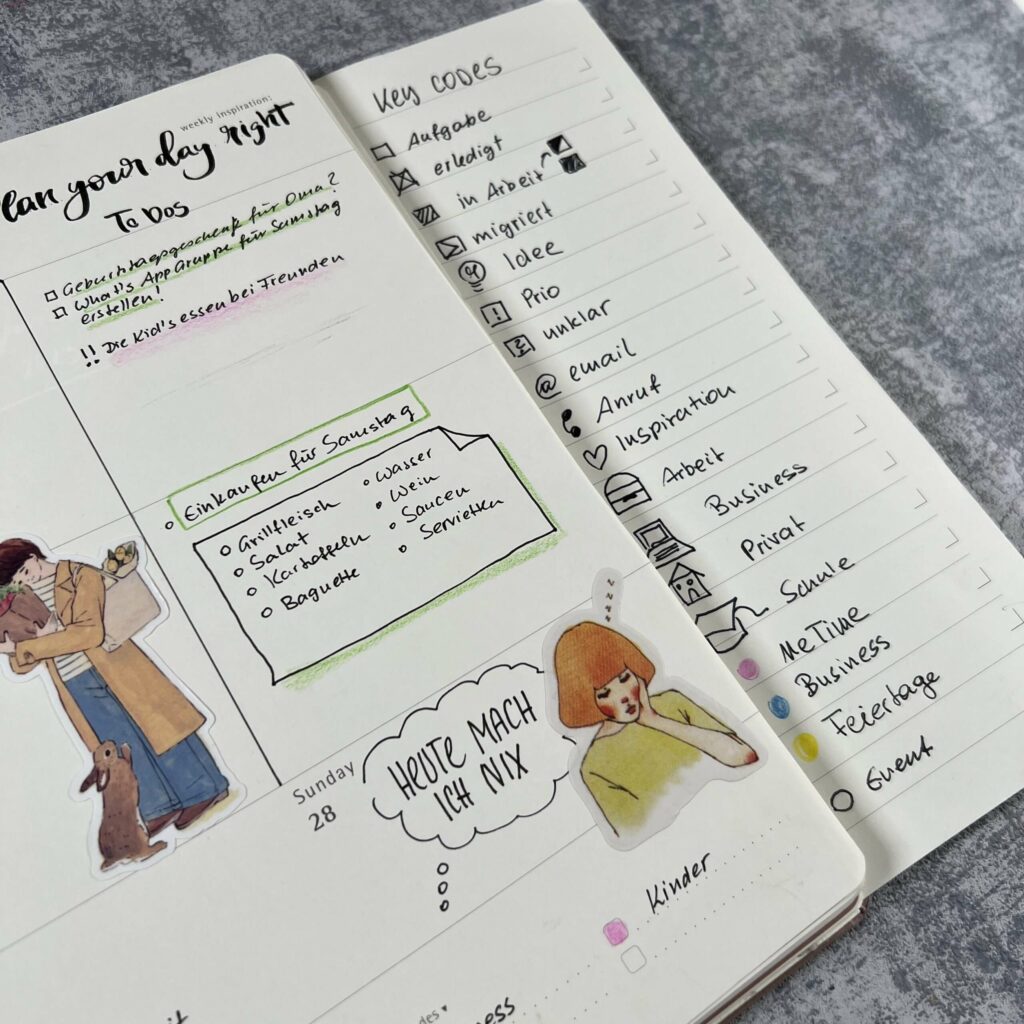 weekly inspiration:
lan your day right
To Dos
Geburtstagsgeschenk für Oma?
What's App Gruppe für Samstag
erstellen!
!! Die Kid's essen bei Freunden
Einkaufen für Samstag
Grillfleisch
Salat
Kartoffeln
Baguette
Wasser
Wein
Saucen
Servietten
Sunday
28
HEUTE MACH
ICH NIX
z z z z
Kinder
des
ess
Key codes
Aufgabe
erledigt
in Arbeit
migriert
Idee
! Prio
unklar
@ email
Anruf
Inspiration
Arbeit
Business
Privat
Schule
Me Time
Business
Feiertage
Event